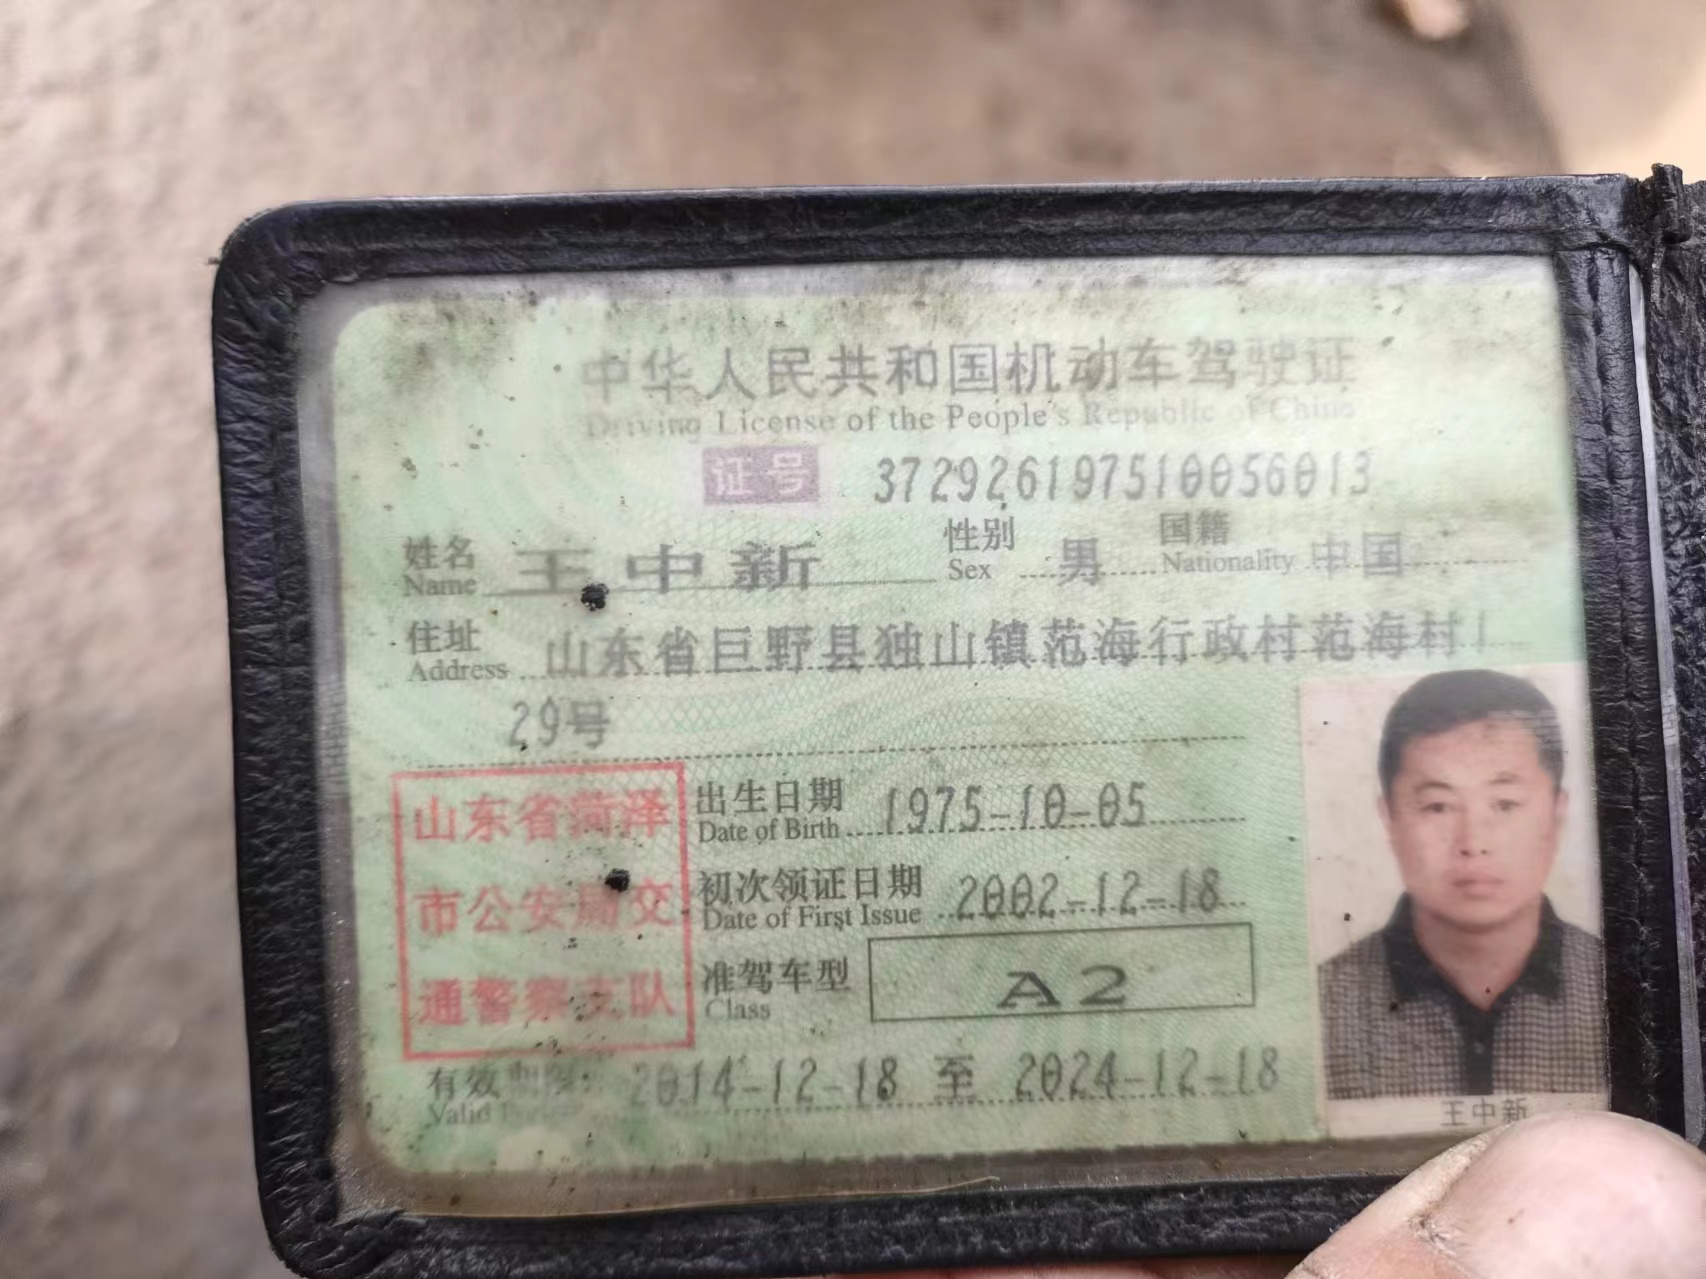 中华人民共和国机动车驾驶证
Driving License of the People's Republic of China
证号 372926197510056013
姓名 王中新 性别 男 国籍 中国
Name Sex Nationality
住址 山东省巨野县独山镇范海行政村范海村1
Address
29号
山东省菏泽
市公安局交
通警察支队
出生日期 1975-10-05
Date of Birth
初次领证日期 2002-12-18
Date of First Issue
准驾车型 A2
Class
有效期限: 2014-12-18 至 2024-12-18
Valid
王中新